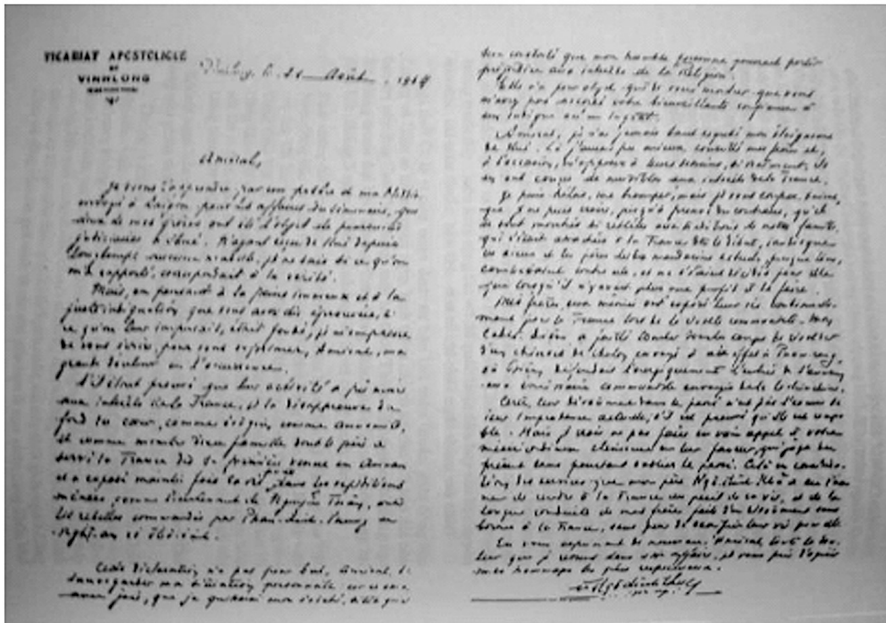 VICARIAT APOSTOLIQUE
DE
VINHLONG
Vinhlong, le 21 Août 1944
Amiral,
Je viens d'apprendre, par un prêtre de ma Mission
envoyé à Saigon pour les affaires du séminaire, que
deux de mes frères ont été l'objet de poursuites
judiciaires à Hué. N'ayant reçu de Hué depuis
longtemps aucune nouvelle, je ne sais si ce qu'on
m'a rapporté, correspondait à la vérité.
Mais, en pensant à la peine immense et à la
juste indignation que vous avez dû éprouver, si
ce qu'on leur imputait, était fondé, je m'empresse
de vous écrire pour vous exprimer, Amiral, ma
grande douleur en l'occurrence.
S'il était prouvé que leur activité a pu nuire
aux intérêts de la France, je la désapprouve du
fond du cœur, comme évêque, comme Annamite,
et comme membre d'une famille dont le père a
servi la France dès sa première venue en Annam
et a exposé maintes fois sa vie pour elle dans les expéditions
menées, comme lieutenant de Nguyễn Thân, contre
les rebelles commandés par Phan-dinh-Phung
Nghệ-an et Hà-tinh.
Cette déclaration n'a pas pour but, Amiral, de
sauvegarder ma situation personnelle
que je quitterai mon évêché, dès que
sera constaté que mon humble personne pourrait porter
préjudice aux intérêts de la Religion.
Elle n'a pour objet que de vous montrer que vous
n'avez pas accordé votre bienveillante confiance à
un intrigant ou un ingrat.
Amiral, je n'ai jamais tant regretté mon éloignement
de Hué. Là j'aurais pu mieux conseiller mes frères et,
à l'occasion, m'opposer à leurs desseins, si vraiment, ils
en ont conçus de nuisibles aux intérêts de la France.
Je puis, hélas, me tromper, mais je suis
que je ne puis croire, jusqu'à preuve du contraire, qu'ils
se sont montrés si rebelles aux traditions de notre famille
qui s'était attachée à la France dès le début, tandis que
les aïeux et les pères des mandarins actuels, jusque là,
combattaient contre elle, et ne s'étaient décidés pour elle
que lorsqu'il n'y avait plus que profit à le faire.
Mes frères, eux-mêmes ont exposé leur vie
pour la France lors de la révolte communiste. Mon
cadet, Diêm, a failli tomber sous les coups de revolver
d'un chinois de Cholon envoyé à cet effet à Phanrang,
où Diêm défendait énergiquement l'entrée de l'Annam
aux émissaires communistes envoyés de la Cochinchine.
Certes, leur dévouement dans le passé n'est pas l'excuse de
leur imprudence actuelle, s'il est prouvé qu'elle est coupable.
Mais je crois ne pas faire en vain appel à votre
clémence en leur faveur, qui juge du
présent sans pourtant oublier le passé. Cela en considération
des services que mon père Ngô-dinh-Kha a eu l'honneur
de rendre à la France au péril de sa vie, et de la
longue conduite de mes frères faite d'un dévouement sans
bornes à la France, sans peur de sacrifier leur vie pour elle.
En vous exprimant de nouveau, Amiral, toute la douleur
que je ressens dans cette affaire, je vous prie d'agréer
mes hommages les plus respectueux.
+ Ngô dinh Thuc